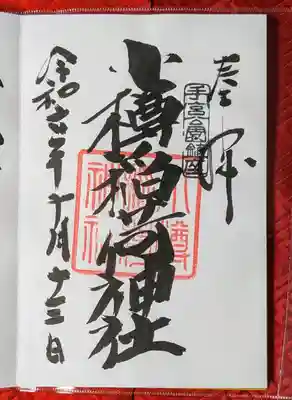 奉拝
手宮公園鎮座
小樽稲荷神社
小樽稲荷神社
令和年十月十三日